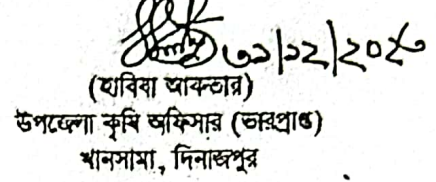 ৩১/১২/২০২৩
(হাবিবা আক্তার)
উপজেলা কৃষি অফিসার (ভারপ্রাপ্ত)
খানসামা, দিনাজপুর